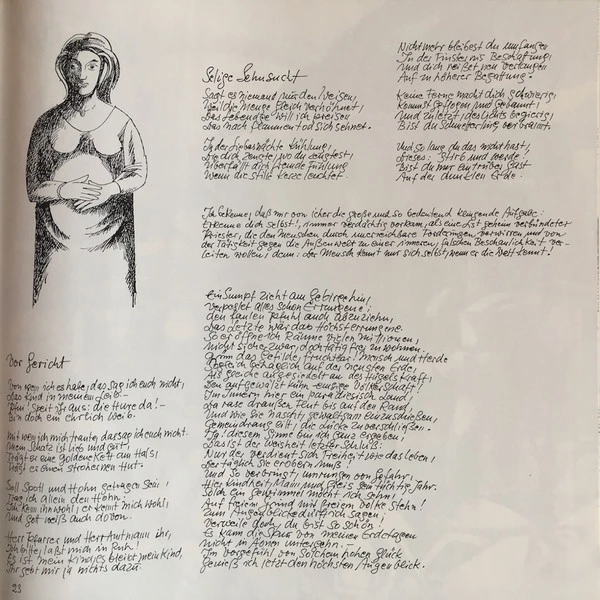 Selige Sehnsucht
Sagt es niemand, nur den Weisen,
Weil die Menge gleich verhöhnet,
Das Lebendge will ich preisen
Das nach Flammentod sich sehnet.
In der Liebesnächte Kühlung,
Die dich zeugte, wo du zeugtest,
Überfällt dich fremde Fühlung
Wenn die stille Kerze leuchtet.
Nicht mehr bleibest du umfangen
In der Finsternis Beschattung,
Und dich reißet neu Verlangen
Auf zu höherer Begattung.
Keine Ferne macht dich schwierig,
Kommst geflogen und gebannt,
Und zuletzt, des Lichts begierig,
Bist du Schmetterling verbrannt.
Und so lang du das nicht hast,
Dieses: Stirb und werde
Bist du nur ein trüber Gast
Auf der dunklen Erde.
Ich bekenne, daß mir von jeher die große und so bedeutend klingende Aufgabe:
Erkenne dich selbst!, immer verdächtig vorkam, als eine List geheim verbündeter
Priester, die den Menschen durch unerreichbare Forderungen verwirren und von
der Tätigkeit gegen die Außenwelt zu einer inneren, falschen Beschaulichkeit ver-
leiten wollen; denn: der Mensch kennt nur sich selbst, wenn er die Welt kennt!
Ein Sumpf zieht am Gebirge hin,
Verpestet alles schon Errungene;
Den faulen Pfuhl auch abzuziehn,
Das Letzte wär das Höchsterrungene.
So eröffne ich Räume vielen Millionen,
Nicht sicher zwar, doch tätig frei zu wohnen.
Grün das Gefilde, fruchtbar! Mensch und Herde
Sogleich behaglich auf der neusten Erde,
Als gleiche angesiedelt an des Hügels Kraft,
Den aufgewälzt kühn-emsige Völkerschaft!
Im Innern hier ein paradiesisch Land,
Da rase draußen Flut bis auf den Rand,
Und wie sie nascht, gewaltsam einzuschießen,
Gemeindrang eilt, die Lücke zu verschließen.
Ja! diesem Sinne bin ich ganz ergeben,
Das ist der Weisheit letzter Schluß:
Nur der verdient sich Freiheit wie das Leben,
Der täglich sie erobern muß!
Und so verbringt, umrungen von Gefahr,
Hier Kindheit, Mann und Greis sein tüchtig Jahr.
Solch ein Gewimmel möcht ich sehn,
Auf freiem Grund mit freiem Volke stehn!
Zum Augenblicke dürft ich sagen:
Verweile doch, du bist so schön!
Es kann die Spur von meinen Erdetagen
Nicht in Äonen untergehn.-
Im Vorgefühl von solchem hohen Glück
Genieß ich jetzt den höchsten Augenblick.
Vor Gericht
Von wem ich es habe, das sag ich euch nicht,
Das Kind in meinem Leib.-
Pfui! Speit ihr aus: die Hure da!-
Bin doch ein ehrlich Weib.
Mit wem ich mich traute, das sag ich euch nicht.
Mein Schatz ist lieb und gut,
Trägt er eine goldene Kett am Hals,
Trägt er einen strohernen Hut.
Soll Spott und Hohn getragen sein,
Trag ich allein den Hohn.
Ich kenn ihn wohl, er kennt mich wohl,
Und Gott weiß auch davon.
Herr Pfarrer und Herr Amtmann ihr,
Ich bitte, laßt mich in Ruh!
Es ist mein Kind, es bleibt mein Kind,
Ihr gebt mir ja nichts dazu.
23